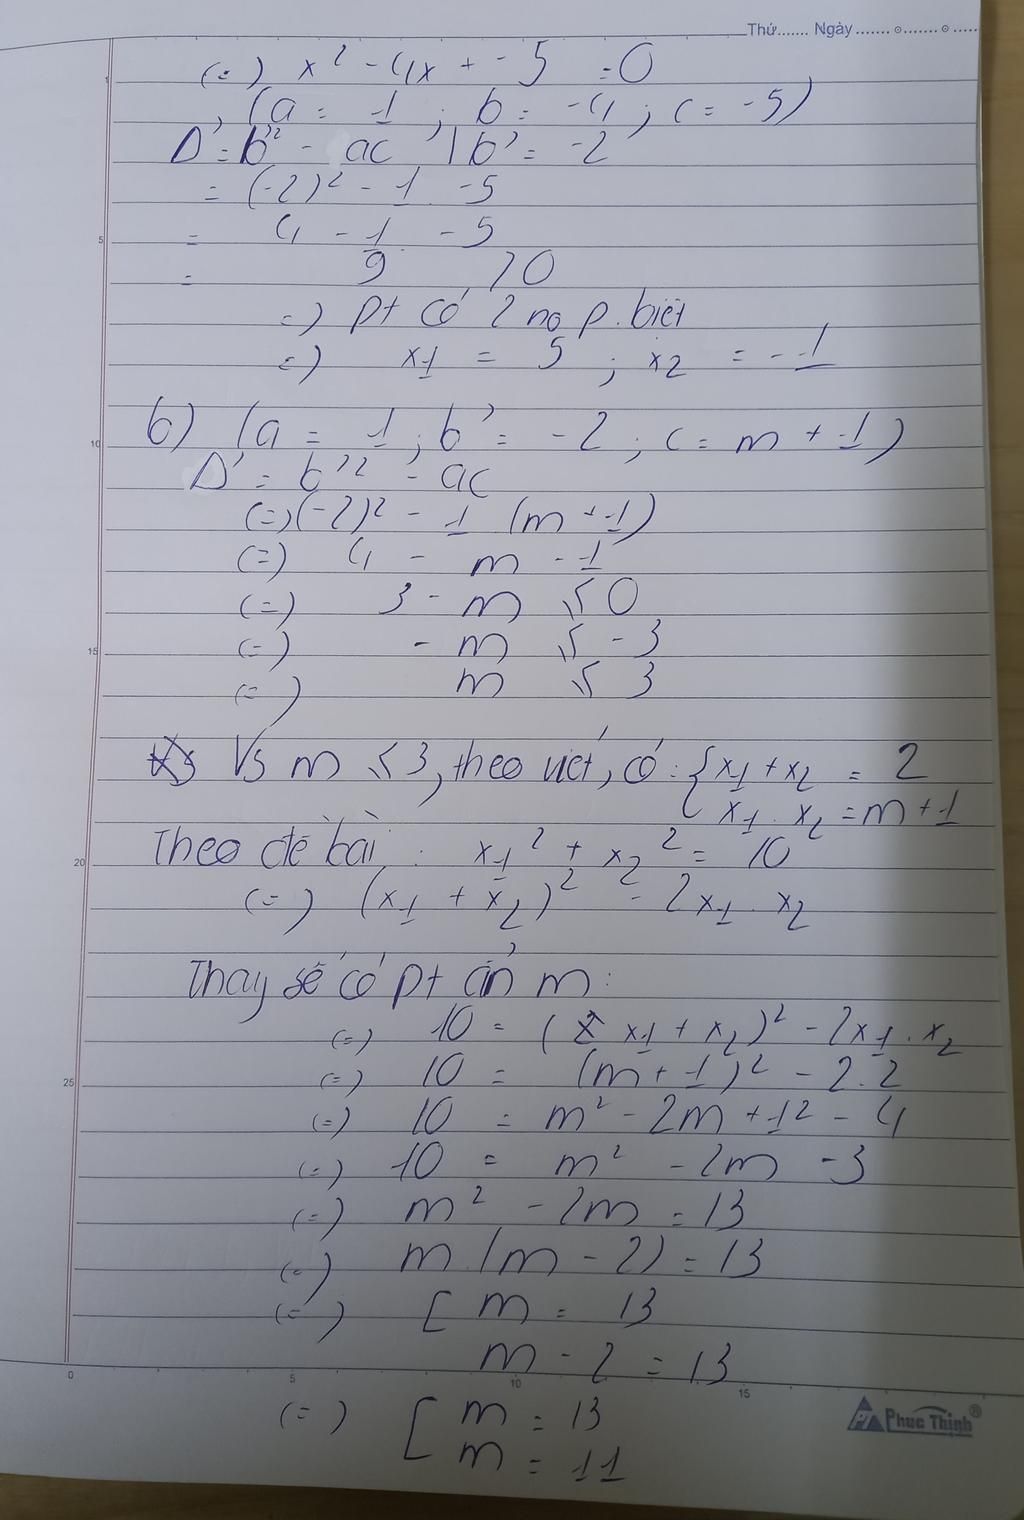 Thứ....... Ngày ....... ....... .....
(=) x² - 4x + -5 = 0
(a = 1 ; b = -4 ; c = -5)
Δ' = b'² - ac | b' = -2
= (-2)² - 1 . -5
= 4 - 1 . -5
= 9 > 0
=) pt có 2 no p.biệt
=) x1 = 5 ; x2 = -1
b) (a = 1 ; b' = -2 ; c = m + 1)
Δ' = b'² - ac
(=) (-2)² - 1 (m + 1)
(=) 4 - m - 1
(=) 3 - m ≤ 0
(=) - m ≤ -3
(=) m ≤ 3
Vs m ≤ 3, theo viét, có: { x1 + x2 = 2
x1 . x2 = m + 1
Theo đề bài : x1² + x2² = 10
(=) (x1 + x2)² - 2x1 . x2
Thay sẽ có pt ẩn m :
(=) 10 = (x1 + x2)² - 2x1 . x2
(=) 10 = (m + 1)² - 2.2
(=) 10 = m² - 2m + 1² - 4
(=) 10 = m² - 2m - 3
(=) m² - 2m = 13
(=) m (m - 2) = 13
(=) [ m = 13
m - 2 = 13
(=) [ m = 13
m = 11
1
5
10
15
20
25
0 5 10 15
Phuc Thinh®